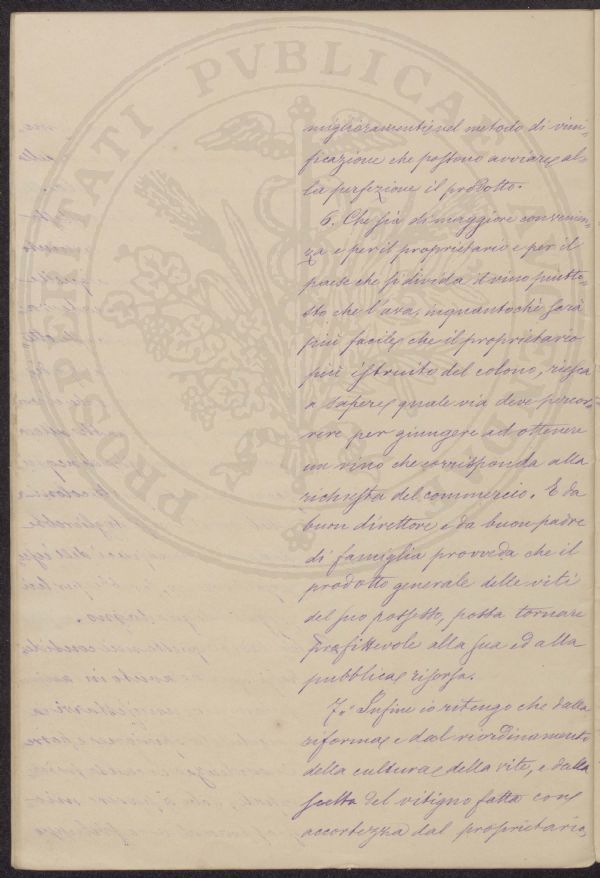 PROSPERITATI PVBLICAE AVGENDAE
miglioramenti nel metodo di vini=
ficazione che possono avviare al=
la perfezione il prodotto.
6. Che sia di maggiore convenien=
za e per il proprietario e per il
paese che si divida il vino piutto=
sto che l'uva, inquantochè sarà
più facile che il proprietario
più istruito del colono, riesca
a sapere quale via deve percor=
rere per giungere ad ottenere
un vino che corrisponda alla
richiesta del commercio. E da
buon direttore e da buon padre
di famiglia provveda che il
prodotto generale delle viti
del suo possesso, possa tornare
profittevole alla sua ed alla
pubblica risorsa.
7.° Infine io ritengo che dalla
riforma e dal riordinamento
della cultura della vite, e dalla
scelta del vitigno fatta con
accortezza dal proprietario,